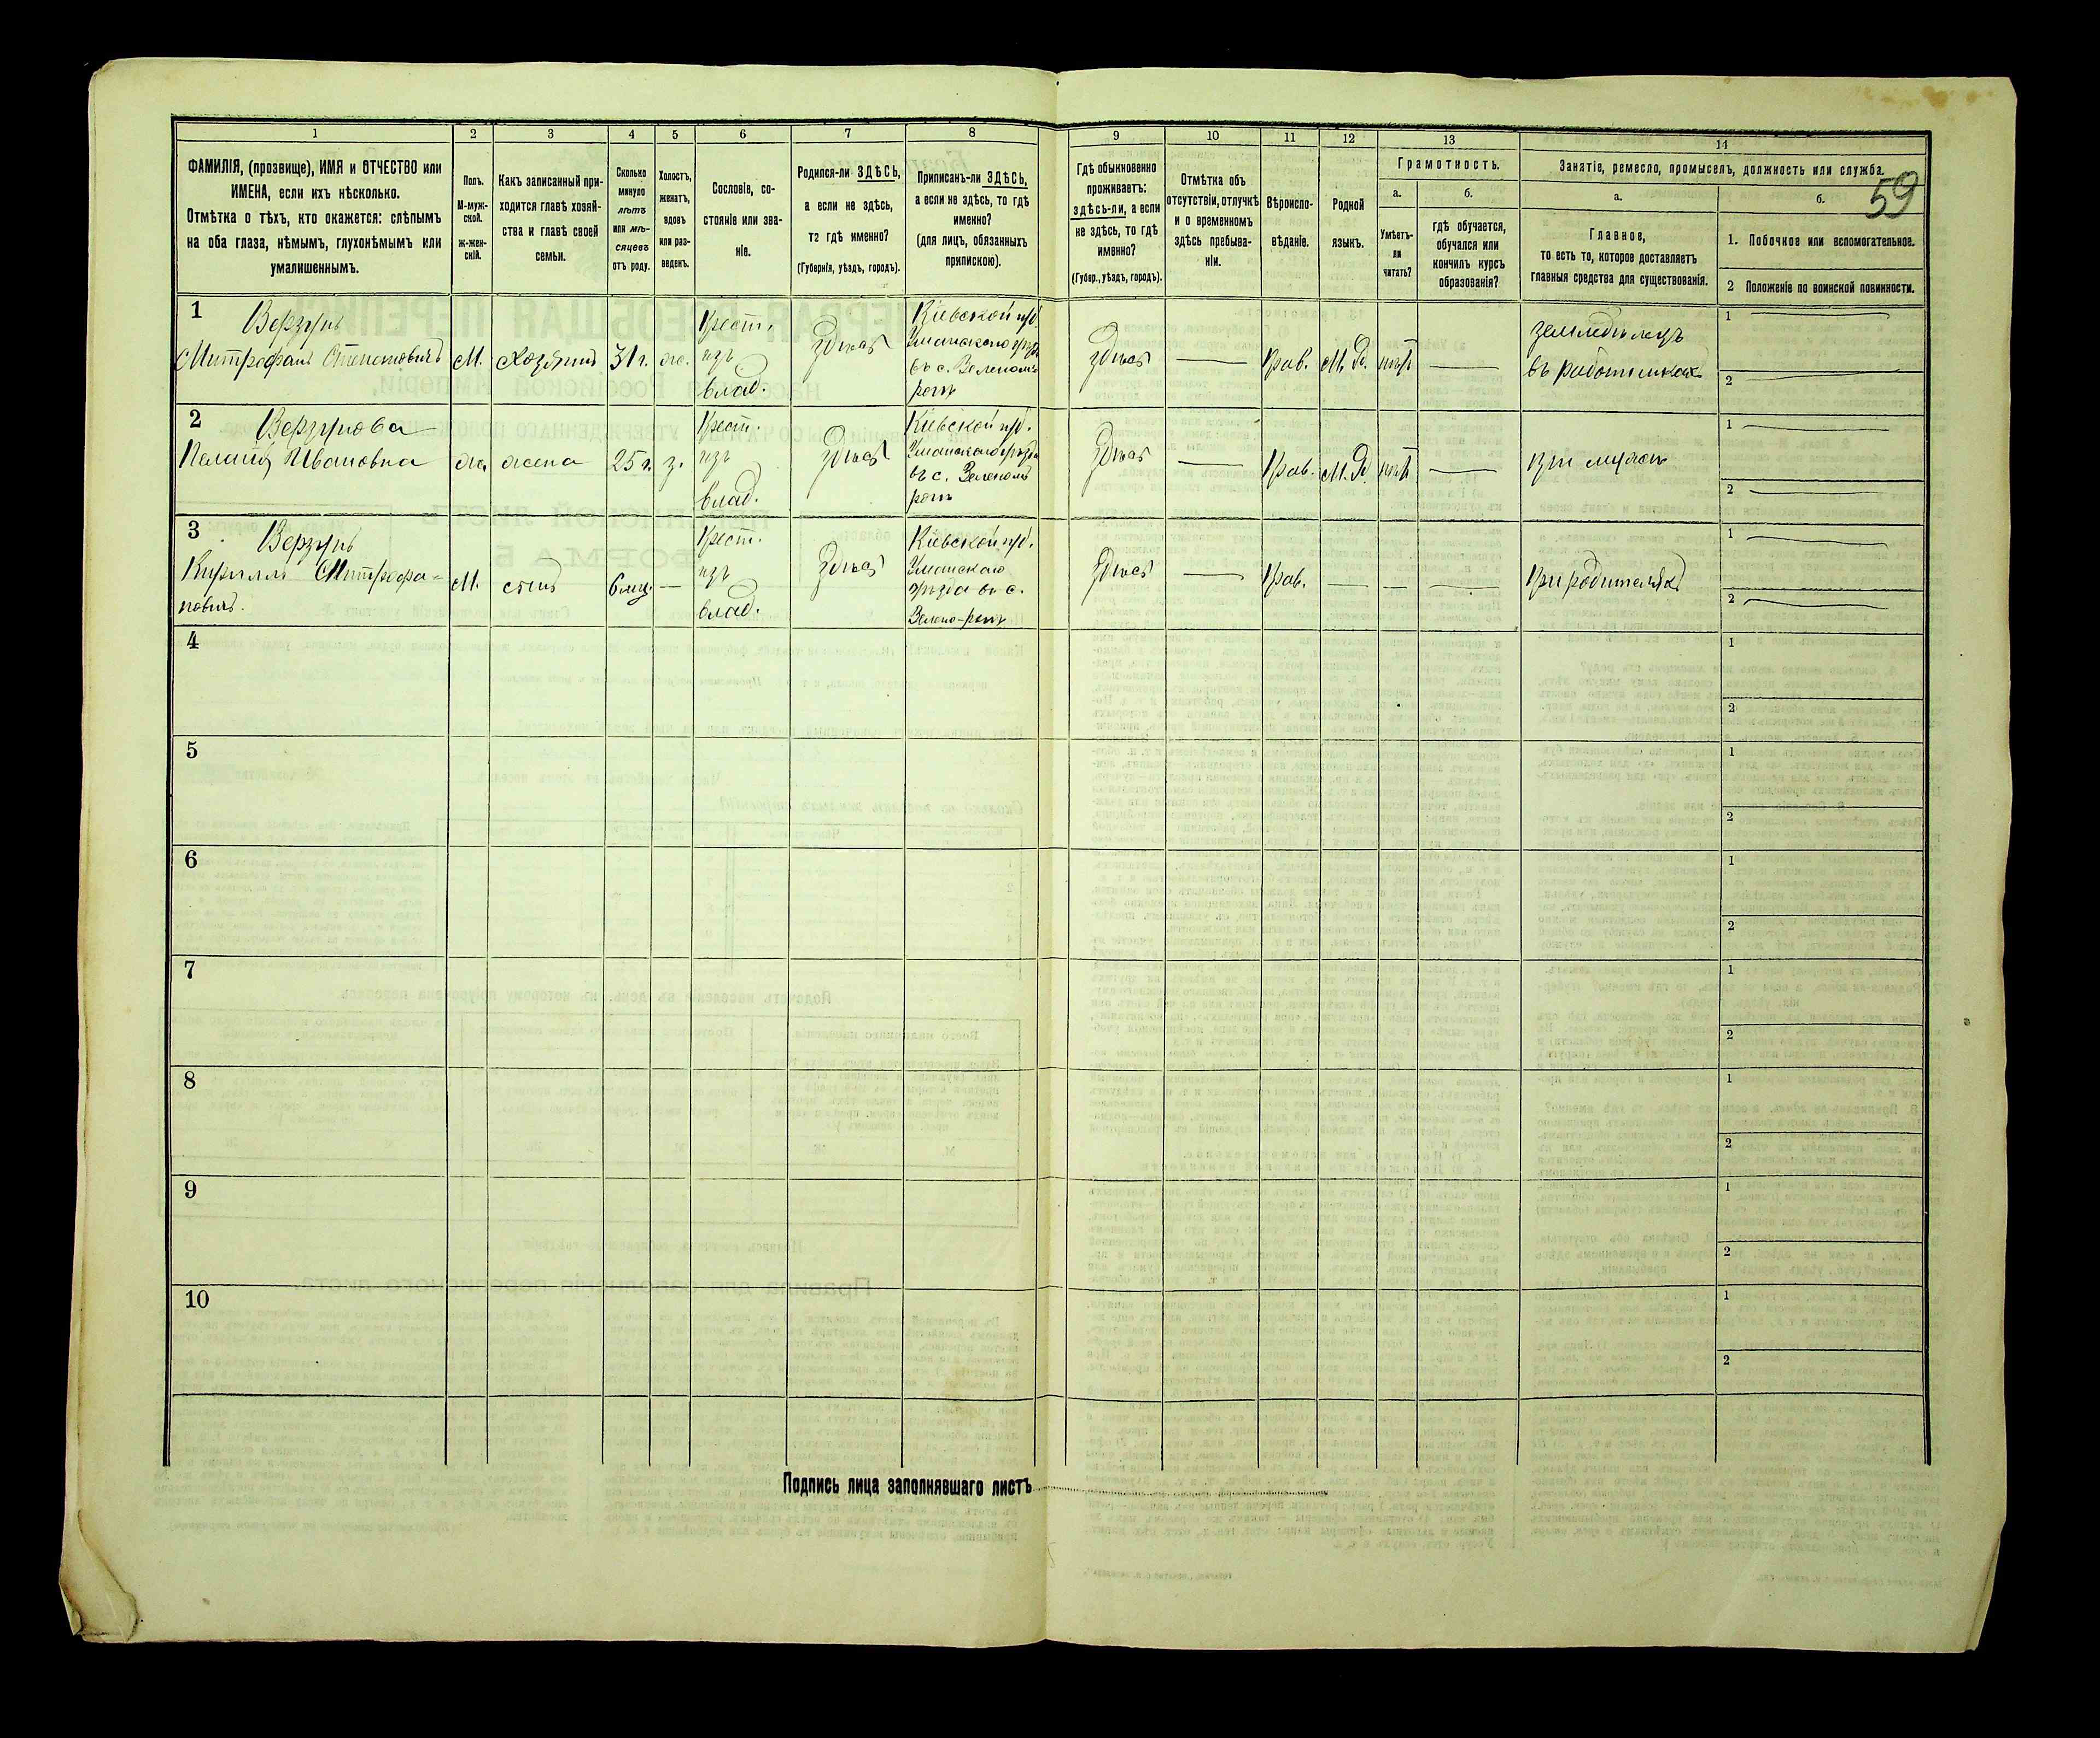 59
1 2 3 4 5 6 7 8 9 10 11 12 13 14
ФАМИЛІЯ, (прозвище), ИМЯ и ОТЧЕСТВО или
ИМЕНА, если ихъ нѣсколько.
Отмѣтка о тѣхъ, кто окажется: слѣпымъ
на оба глаза, нѣмымъ, глухонѣмымъ или
умалишеннымъ.
Полъ.
М-муж-
ской.
ж-жен-
скій.
Какъ записанный при-
ходится главѣ хозяй-
ства и главѣ своей
семьи.
Сколько
минуло
лѣтъ
или мѣ-
сяцевъ
отъ роду.
Холостъ,
женатъ,
вдовъ
или раз-
веденъ.
Сословіе, со-
стояніе или зва-
ніе.
Родился-ли ЗДѢСЬ,
а если не здѣсь,
то гдѣ именно?
(Губернія, уѣздъ, городъ).
Приписанъ-ли ЗДѢСЬ,
а если не здѣсь, то гдѣ
именно?
(для лицъ, обязанныхъ
припискою).
Гдѣ обыкновенно
проживаетъ:
здѣсь-ли, а если
не здѣсь, то гдѣ
именно?
(Губер., уѣздъ, городъ).
Отмѣтка объ
отсутствіи, отлучкѣ
и о временномъ
здѣсь пребыва-
ніи.
Вѣроиспо-
вѣданіе.
Родной
языкъ.
Грамотность.
а.
Умѣетъ-
ли
читать?
б.
гдѣ обучается,
обучался или
кончилъ курсъ
образованія?
Занятіе, ремесло, промыселъ, должность или служба.
а.
Главное,
то есть то, которое доставляетъ
главныя средства для существованія.
б.
1. Побочное или вспомогательное.
2 Положеніе по воинской повинности.
1
Верзунъ
Митрофанъ
М.
Хозяинъ
31 г.
ж.
Крест.
изъ
влад.
Здѣсь
Кіевской губ.
Уманскаго уѣзда
въ с. Зеленомъ
рогѣ
Здѣсь
—
Прав.
М. Р.
нѣтъ
—
земледѣлецъ
въ работникахъ
1
2 —
2
Верзунова
Ивановна
ж.
жена
25 г.
з.
Крест.
изъ
влад.
Здѣсь
Кіевской губ.
Уманскаго уѣзда
въ с. Зеленомъ
рогѣ
Здѣсь
—
Прав.
М. Р.
нѣтъ
—
при мужѣ
1 —
2 —
3
Верзунъ
Кириллъ Митрофа-
новичъ.
М.
сынъ
6 мѣц.
—
Крест.
изъ
влад.
Здѣсь
Кіевской губ.
Уманскаго
уѣзда въ с.
Зелено-рогѣ
Здѣсь
—
Прав.
—
—
—
При родителяхъ
1 —
2 —
4
1
2
5
1
2
6
1
2
7
1
2
8
1
2
9
1
2
10
1
2
Подпись лица заполнявшаго листъ